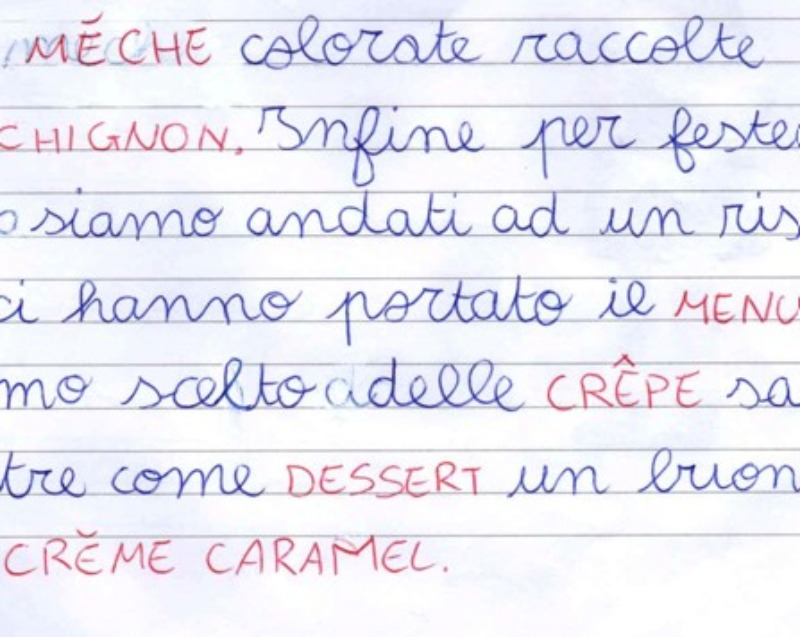 MĔCHE colorate raccolte
CHIGNON. Infine per feste
siamo andati ad un ris
ci hanno portato il MENU
mo scelto delle CRÊPE sa
tre come DESSERT un buon
CRĔME CARAMEL.